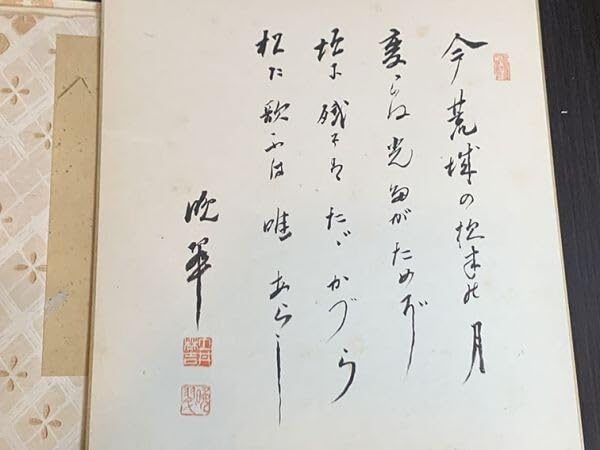 今荒城の夜半の月
変らぬ光誰がためぞ
垣に残るはたゞかづら
松に歌ふは唯あらし
晩翠
晩翠